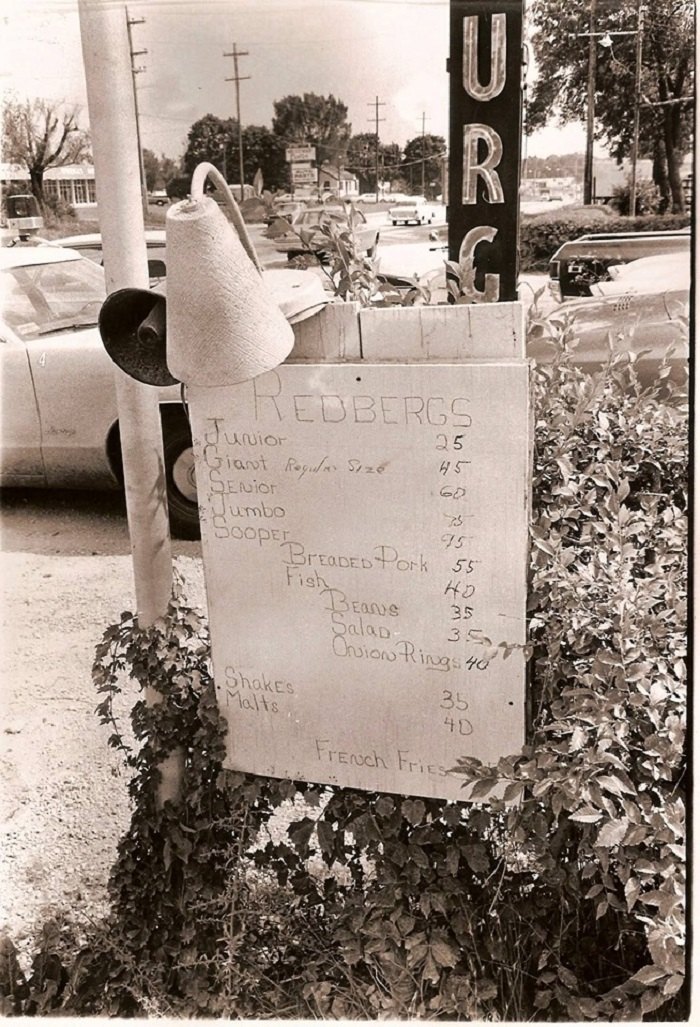 URG
REDBERGS
Junior 25
Giant Regular Size 45
Senior 60
Jumbo 75
Sooper 95
Breaded Pork 55
Fish 40
Beans 35
Salad 35
Onion Rings 40
Shakes 35
Malts 40
French Fries